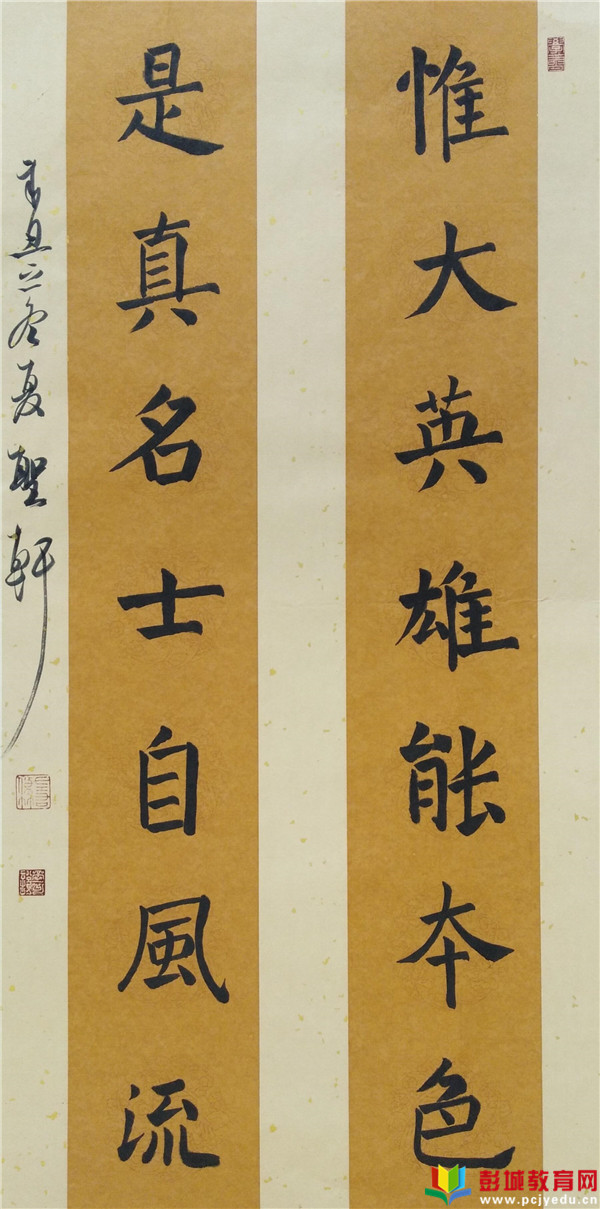 惟大英雄能本色
是真名士自風流
辛丑之冬夏聖軒
彭城教育网
www.pcjyedu.cn